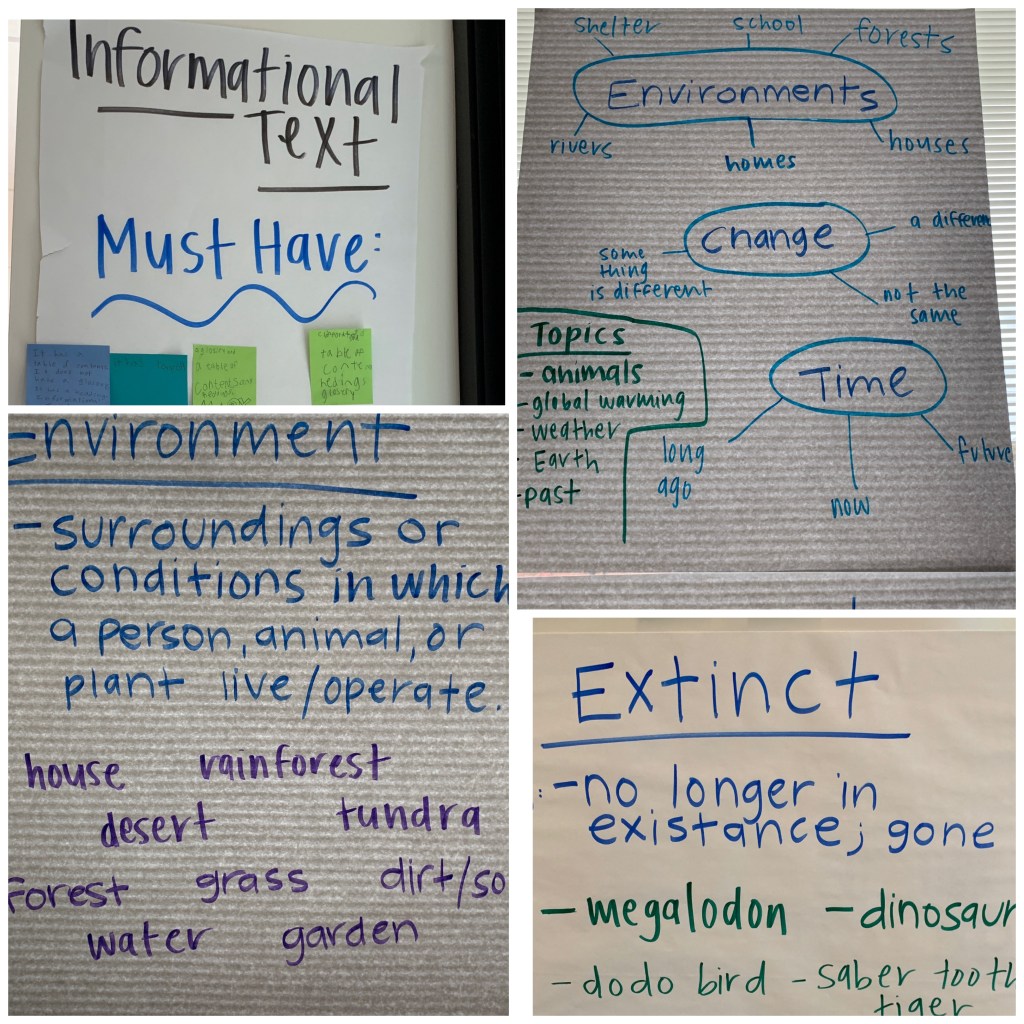 Informational
Text
Must Have:
It has a
table of contents
a table of
Contents and
table of
conten
hedings
glosery
shelter school forests
Environments
rivers homes houses
Change
a differen
some
thing
is different
not the
same
Topics
- animals
- global warming
- weather
- Earth
- past
Time
long
ago
now
future
Environment
- surroundings or
conditions in which
a person, animal, or
plant live/operate.
house rainforest
desert tundra
Forest grass dirt/so
water garden
Extinct
- no longer in
existance; gone
- megalodon - dinosaur
- dodo bird - saber tooth
tiger